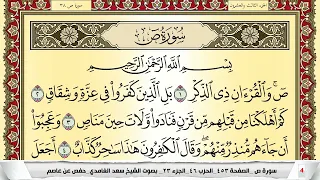 الجزء الثالث والعشرون
سورة ص ٣٨
سُورَةُ صٓ
بِسْمِ ٱللَّهِ ٱلرَّحْمَٰنِ ٱلرَّحِيمِ
صٓ ۚ وَٱلْقُرْءَانِ ذِى ٱلذِّكْرِ ١ بَلِ ٱلَّذِينَ كَفَرُوا۟ فِى عِزَّةٍ وَشِقَاقٍ ٢
كَمْ أَهْلَكْنَا مِن قَبْلِهِم مِّن قَرْنٍ فَنَادَوا۟ وَّلَاتَ حِينَ مَنَاصٍ ٣ وَعَجِبُوٓا۟
أَن جَآءَهُم مُّنذِرٌ مِّنْهُمْ ۖ وَقَالَ ٱلْكَٰفِرُونَ هَٰذَا سَٰحِرٌ كَذَّابٌ ٤ أَجَعَلَ
سورة ص - الصفحة ٤٥٣ - الحزب ٤٦ - الجزء ٢٣ - بصوت الشيخ سعد الغامدي - حفص عن عاصم
4